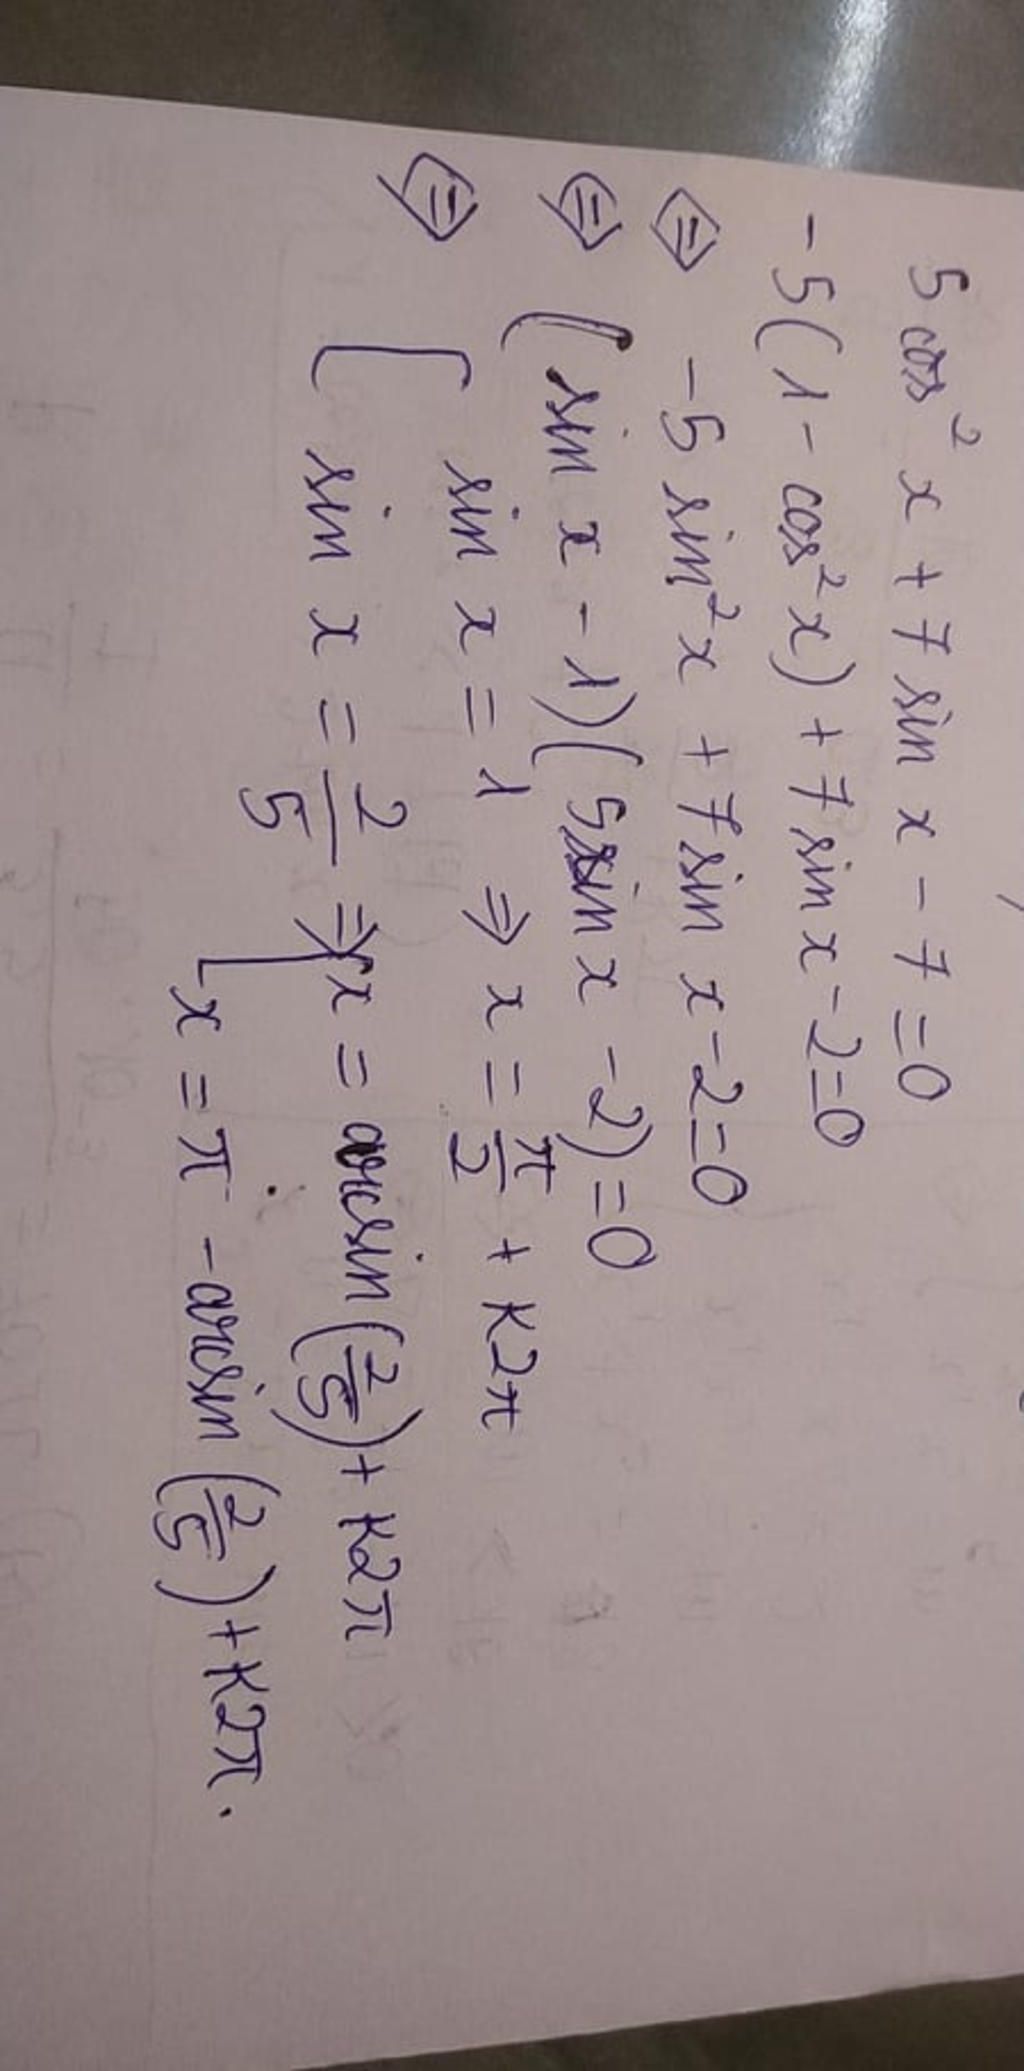 5 cos² x + 7 sin x - 7 = 0
- 5(1 - cos² x) + 7 sin x - 2 = 0
⇔ - 5 sin² x + 7 sin x - 2 = 0
⇔ (sin x - 1)(5 sin x - 2) = 0
⇔ [ sin x = 1 ⇒ x = π/2 + K2π
sin x = 2/5 ⇒ [ x = arcsin(2/5) + K2π
x = π - arcsin(2/5) + K2π.